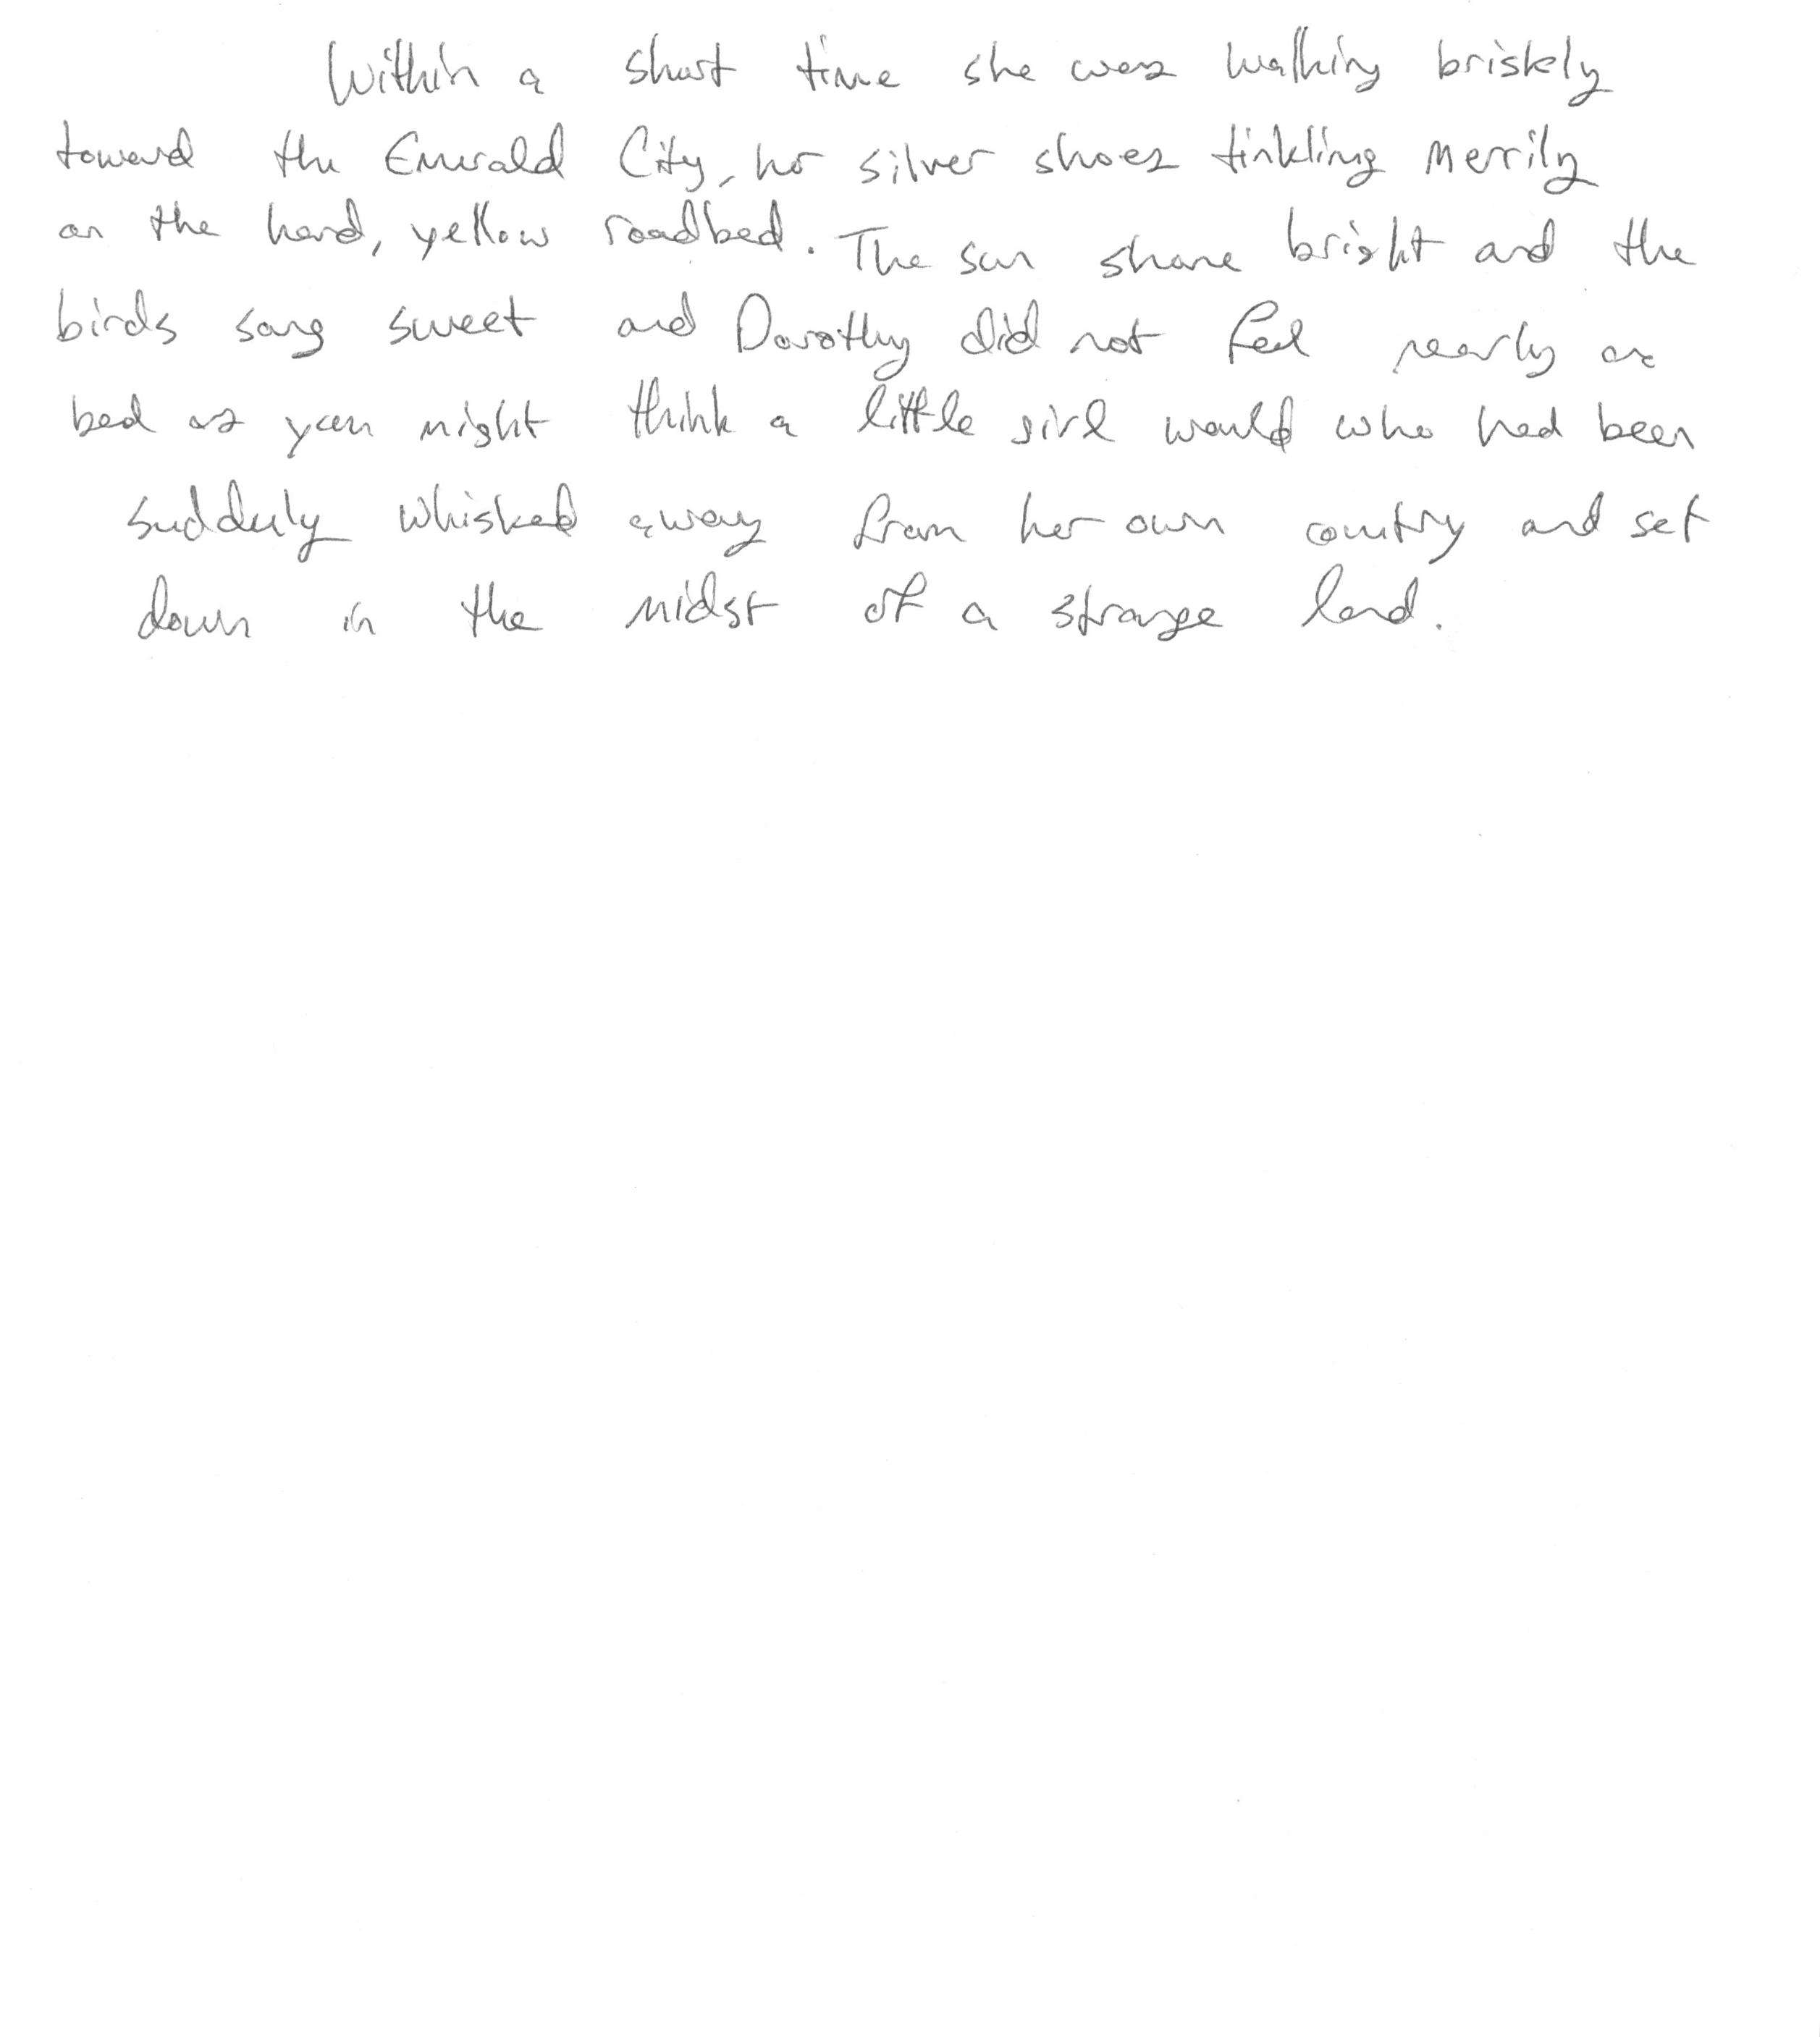 Within a short time she was walking briskly
toward the Emerald City, her silver shoes tinkling merrily
on the hard, yellow roadbed. The sun shone bright and the
birds sang sweet and Dorothy did not feel nearly as
bad as you might think a little girl would who had been
suddenly whisked away from her own country and set
down in the midst of a strange land.